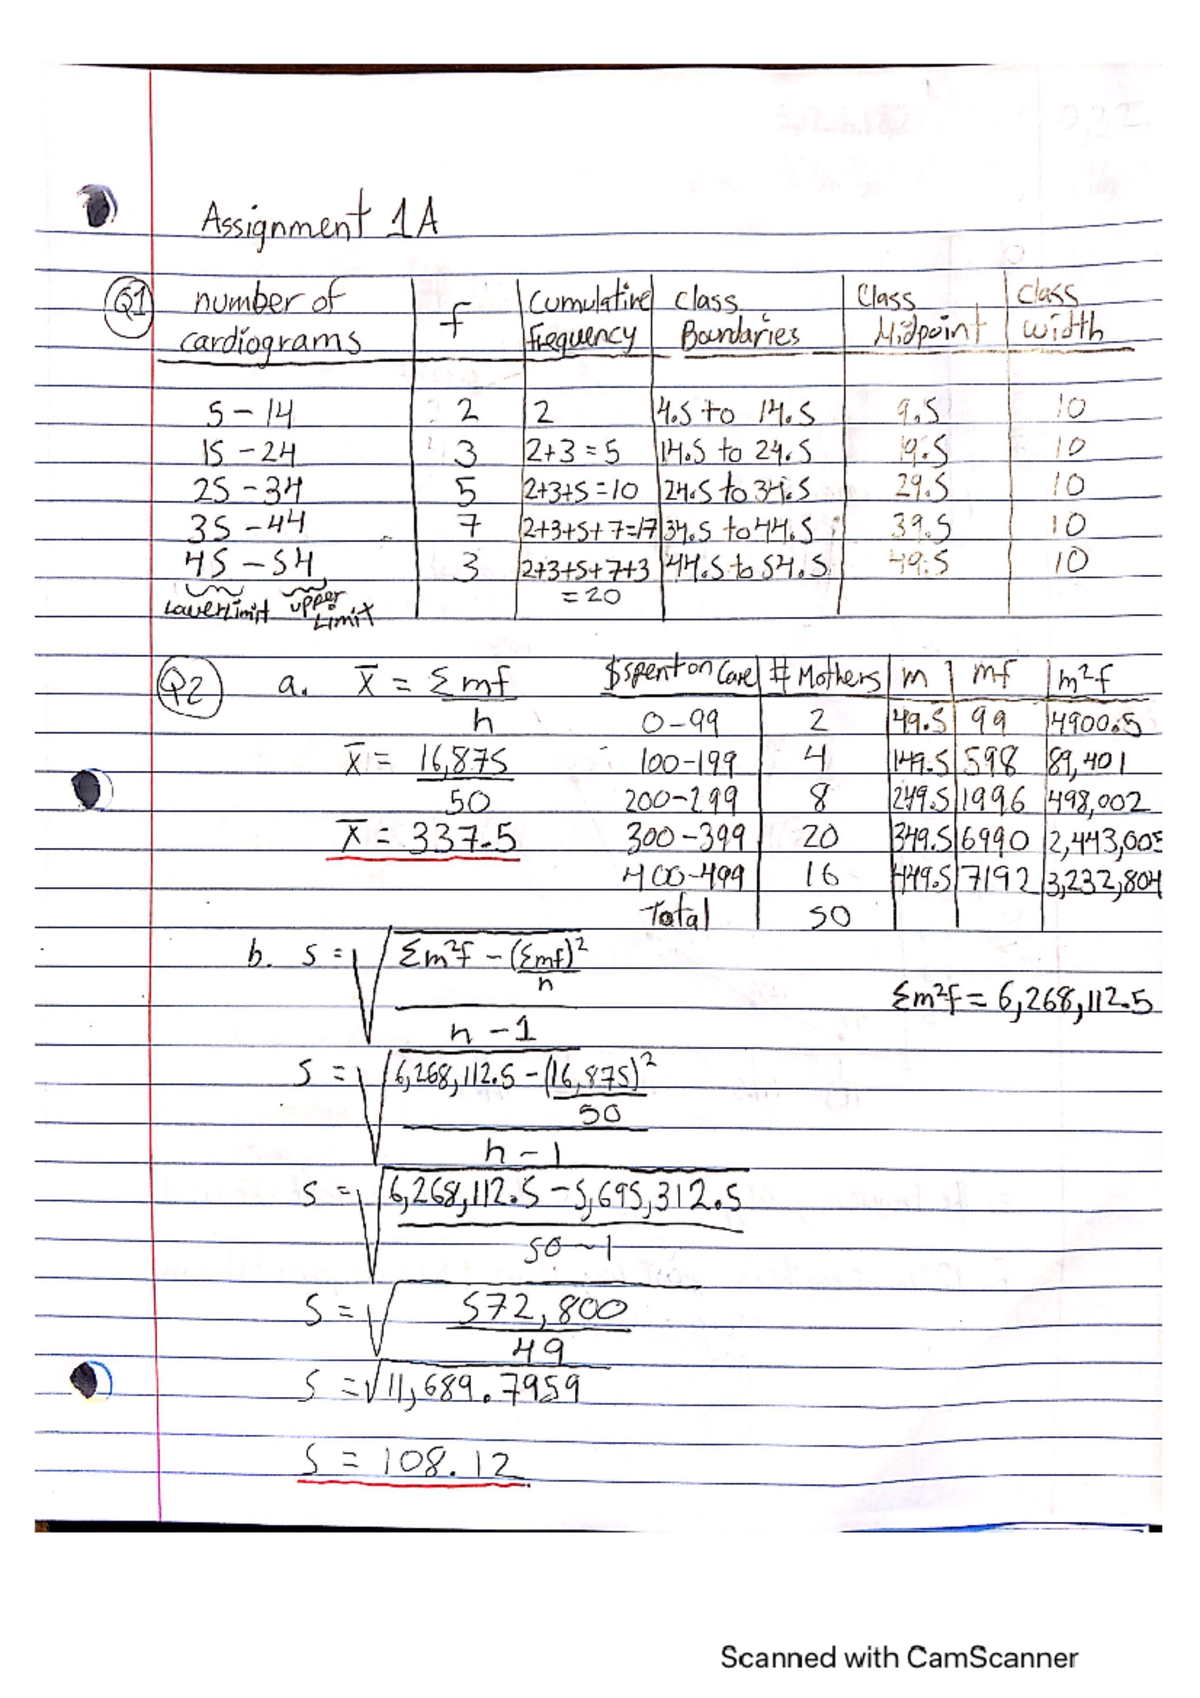 Assignment 1A
Q1 number of cardiograms | f | Cumulative Frequency | Class Boundaries | Class Midpoint | Class width
5-14 | 2 | 2 | 4.5 to 14.5 | 9.5 | 10
15-24 | 3 | 2+3=5 | 14.5 to 24.5 | 19.5 | 10
25-34 | 5 | 2+3+5=10 | 24.5 to 34.5 | 29.5 | 10
35-44 | 7 | 2+3+5+7=17 | 34.5 to 44.5 | 39.5 | 10
45-54 | 3 | 2+3+5+7+3 = 20 | 44.5 to 54.5 | 49.5 | 10
Lower Limit upper Limit
Q2 a. x̄ = Σmf / n
x̄ = 16,875 / 50
x̄ = 337.5
$ spent on Care | # Mothers | m | mf | m²f
0-99 | 2 | 49.5 | 99 | 4900.5
100-199 | 4 | 149.5 | 598 | 89,401
200-299 | 8 | 249.5 | 1996 | 498,002
300-399 | 20 | 349.5 | 6990 | 2,443,005
400-499 | 16 | 449.5 | 7192 | 3,232,804
Total | 50
Σm²f = 6,268,112.5
b. s = √((Σm²f - (Σmf)²/n) / (n-1))
s = √((6,268,112.5 - (16,875)²/50) / (n-1))
s = √((6,268,112.5 - 5,695,312.5) / (50-1))
s = √(572,800 / 49)
s = √11,689.7959
s = 108.12
Scanned with CamScanner